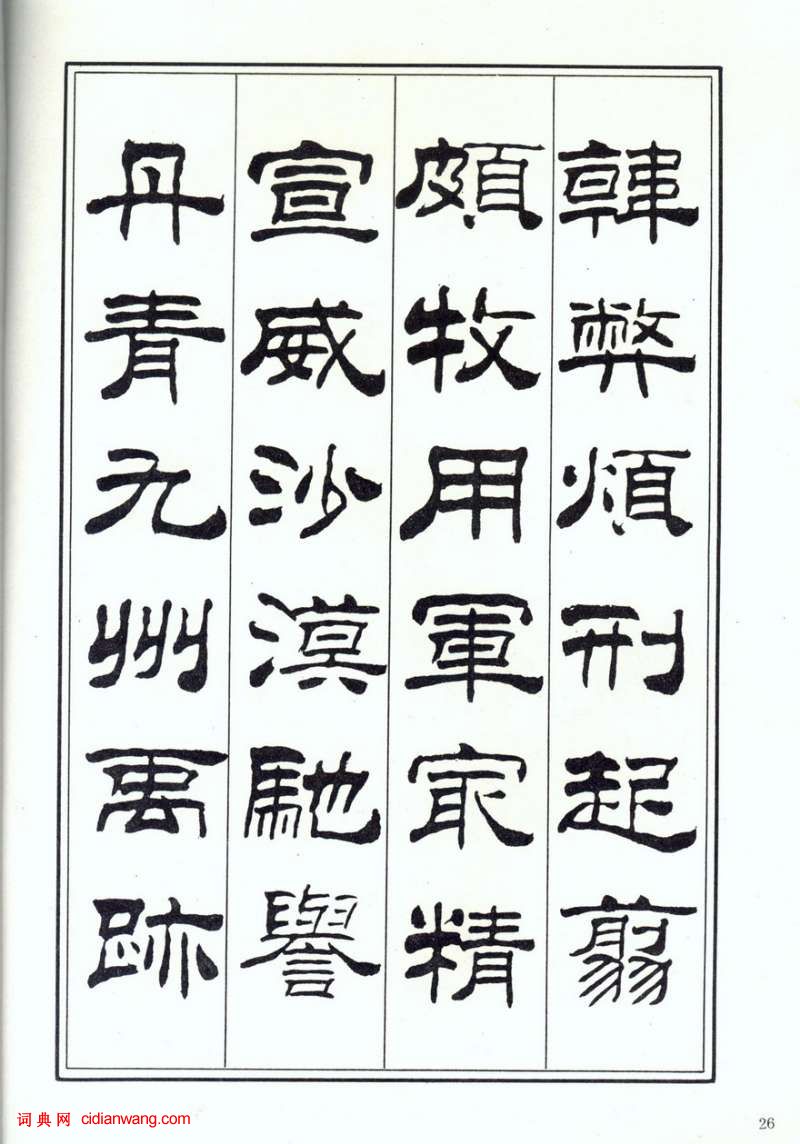 韓弊煩刑起翦
頗牧用軍最精
宣威沙漠馳譽
丹青九州禹跡
词典网 cidianwang.com
26